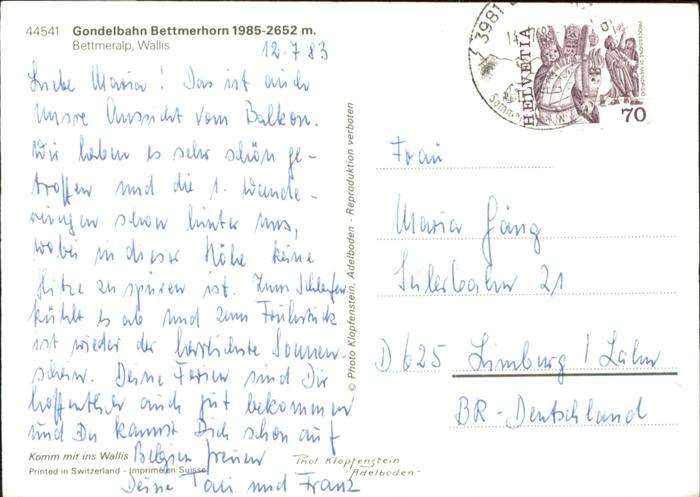 44541 Gondelbahn Bettmerhorn 1985-2652 m.
Bettmeralp, Wallis
12.7.83
Liebe Maria! Das ist auch
unsre Aussicht vom Balkon.
Wir haben es sehr schön ge-
troffen und die 1. Wande-
rungen schon hinter uns,
wobei in dieser Höhe keine
Hitze zu spüren ist. Zum Schlafen
kühlt es ab und zum Frühstück
ist wieder der herrlichste Sonnen-
schein. Deine Ferien sind Dir
hoffentlich auch gut bekommen
und Du kannst Dich schon auf
Belgien freuen
Deine und Franz
Komm mit ins Wallis
Printed in Switzerland - Imprimé en Suisse
Phot. Klopfenstein
"Adelboden"
© Photo Klopfenstein, Adelboden - Reproduktion verboten
3981
HELVETIA
70
Frau
Maria
21
D 625 Limburg / Lahn
BR-Deutschland